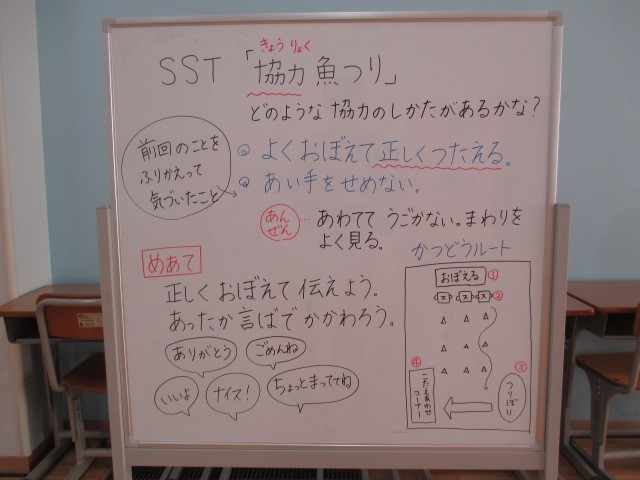 きょうりょく
SST「協力魚つり」
どのような協力のしかたがあるかな?
前回のことを
ふりかえって
気づいたこと
よくおぼえて正しくつたえる。
あい手をせめない。
あん
ぜん
あわててうごかない。まわりを
よく見る。
めあて
正しくおぼえて伝えよう。
あったか言ばでかかわろう。
ありがとう
ごめんね
いいよ
ナイス!
ちょっとまっててね
かつどうルート
おぼえる ①
②
③
つりぼり
④
こたえあわせ
コーナー